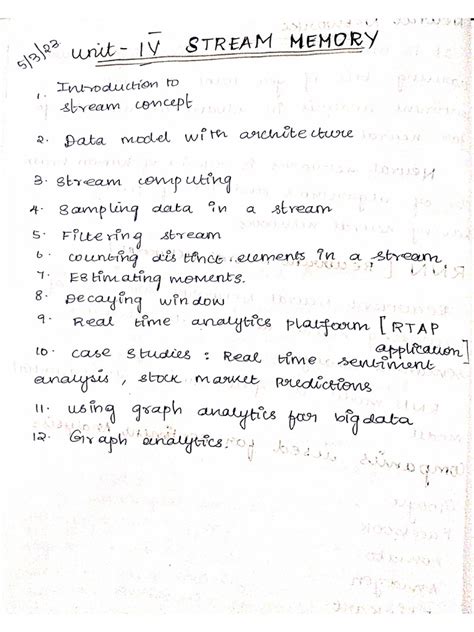 5/3/23 Unit - IV STREAM MEMORY
1. Introduction to
stream concept
2. Data model with architecture
3. Stream computing
4. Sampling data in a stream
5. Filtering stream
6. counting distinct elements in a stream
7. Estimating moments.
8. Decaying window
9. Real time analytics platform [RTAP
application]
10. case studies : Real time sentiment
analysis, stock market predictions
11. using graph analytics for big data
12. Graph analytics.